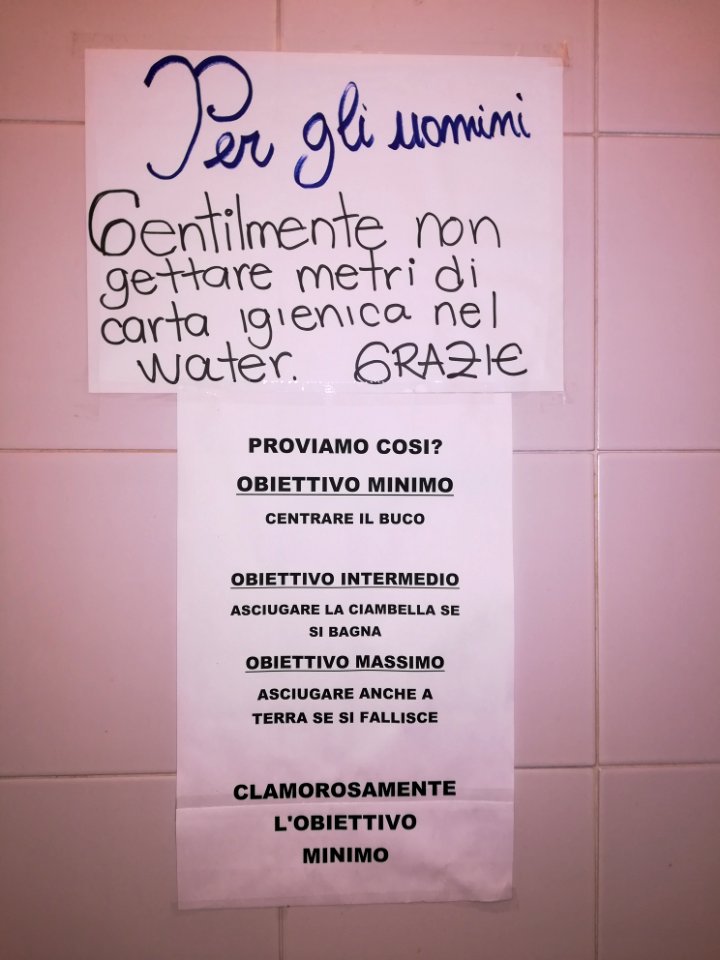 Per gli uomini
Gentilmente non
gettare metri di
carta igienica nel
water. GRAZIE
PROVIAMO COSI?
OBIETTIVO MINIMO
CENTRARE IL BUCO
OBIETTIVO INTERMEDIO
ASCIUGARE LA CIAMBELLA SE
SI BAGNA
OBIETTIVO MASSIMO
ASCIUGARE ANCHE A
TERRA SE SI FALLISCE
CLAMOROSAMENTE
L'OBIETTIVO
MINIMO